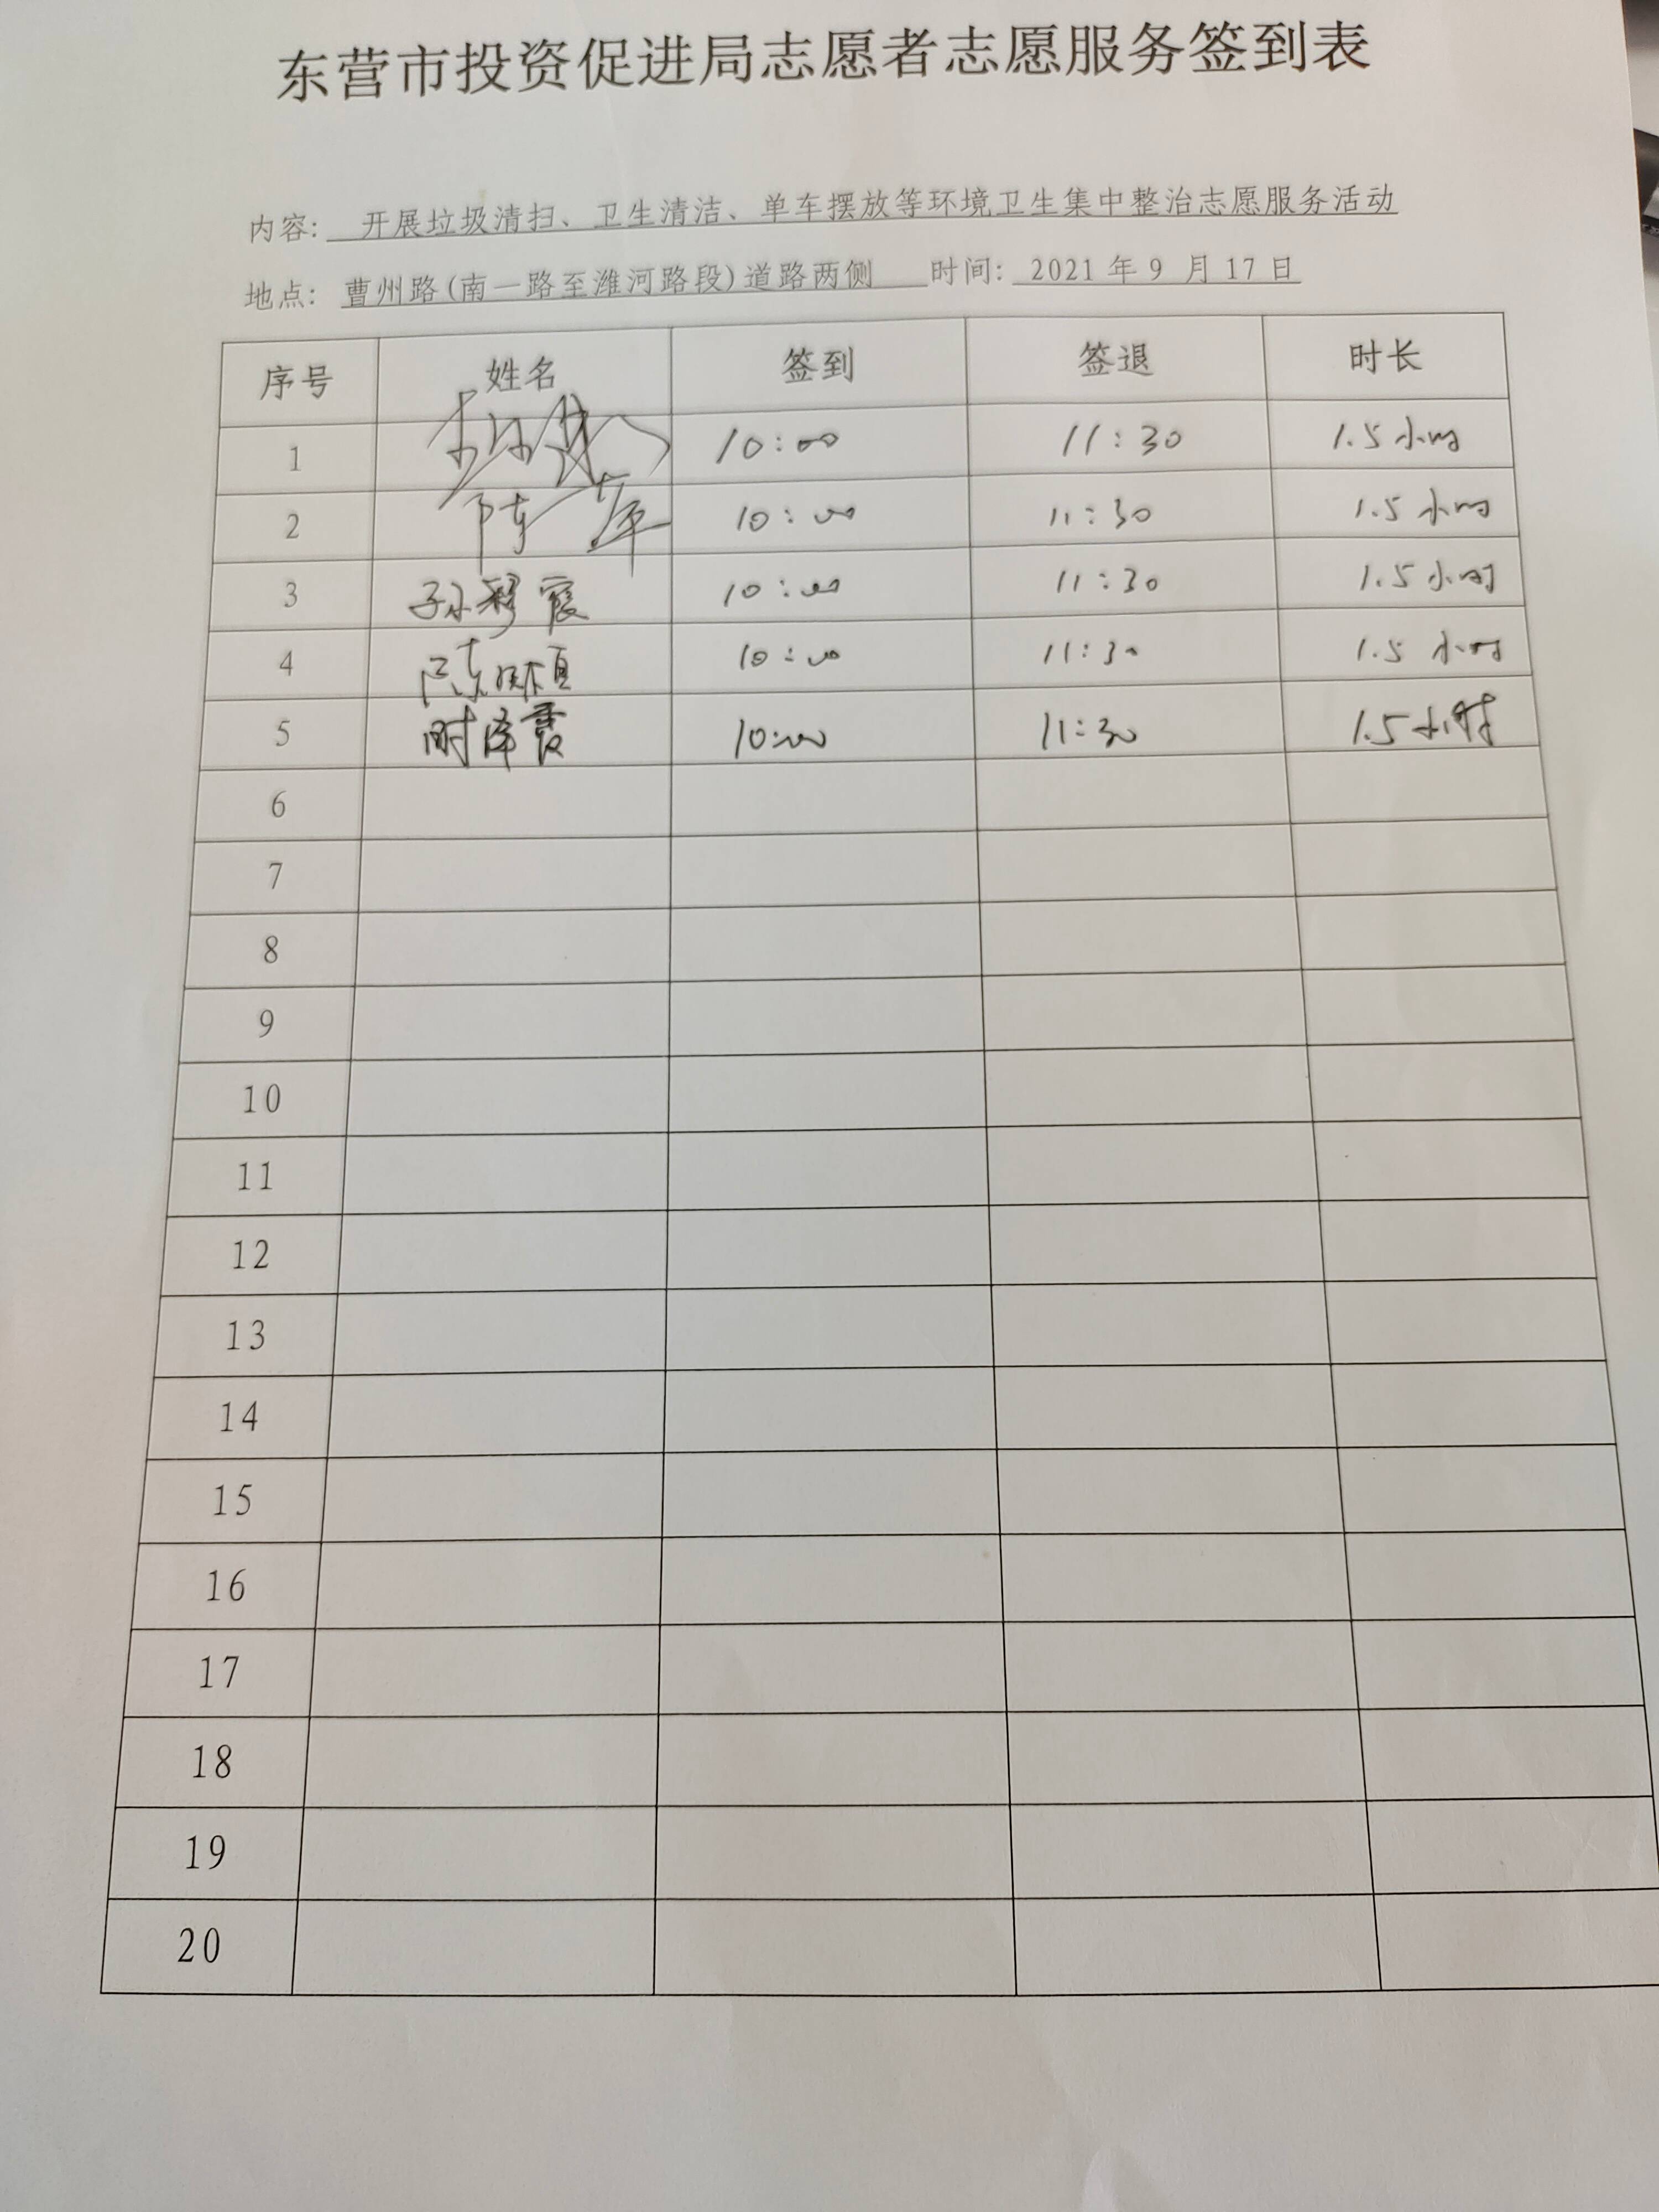 东营市投资促进局志愿者志愿服务签到表
内容: 开展垃圾清扫、卫生清洁、单车摆放等环境卫生集中整治志愿服务活动
地点: 曹州路(南一路至潍河路段)道路两侧 时间: 2021年9月17日
序号 姓名 签到 签退 时长
1 10:00 11:30 1.5小时
2 陈军 10:00 11:30 1.5小时
3 孙霞 10:00 11:30 1.5小时
4 陈 10:00 11:30 1.5小时
5 时泽霞 10:00 11:30 1.5小时
6
7
8
9
10
11
12
13
14
15
16
17
18
19
20